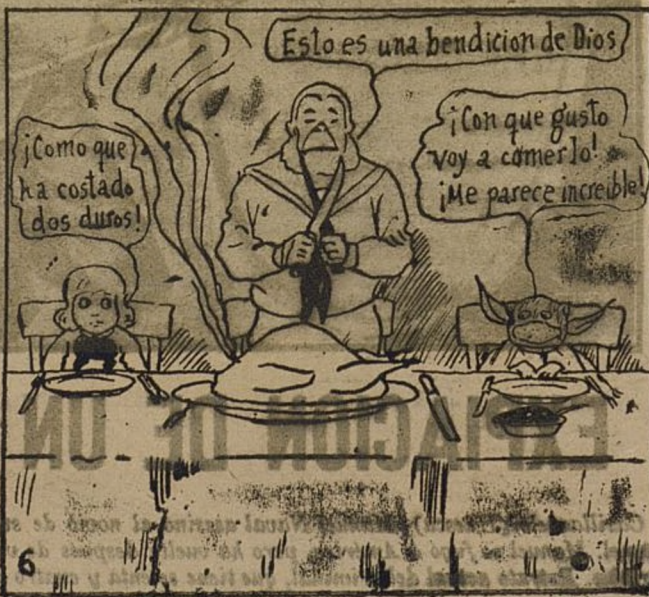 Esto es una bendicion de Dios
¡Como que
ha costado
dos duros!
¡Con que gusto
voy a comerlo!
¡Me parece increible!
EXPIACION DE UN
6